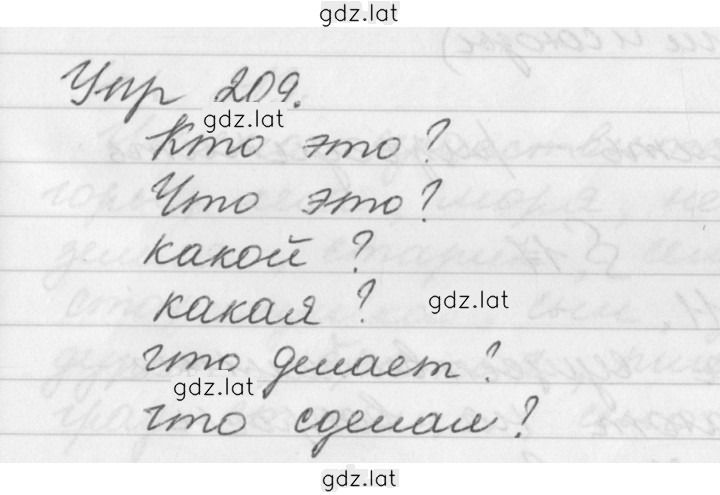 gdz.lat
Упр 209.
gdz.lat
Кто это?
Что это?
какой?
какая?
gdz.lat
что делает?
gdz.lat
что сделал?
gdz.lat